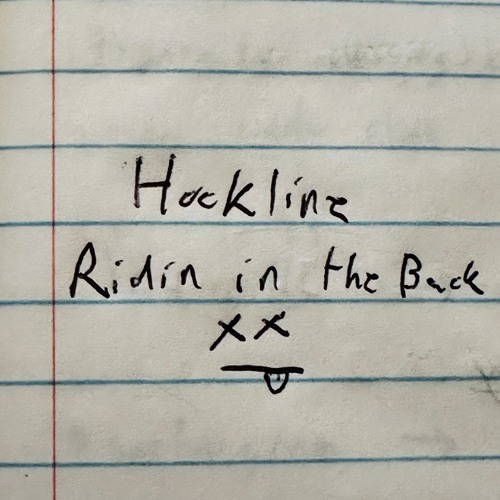 Hockline
Ridin in the Back
XX